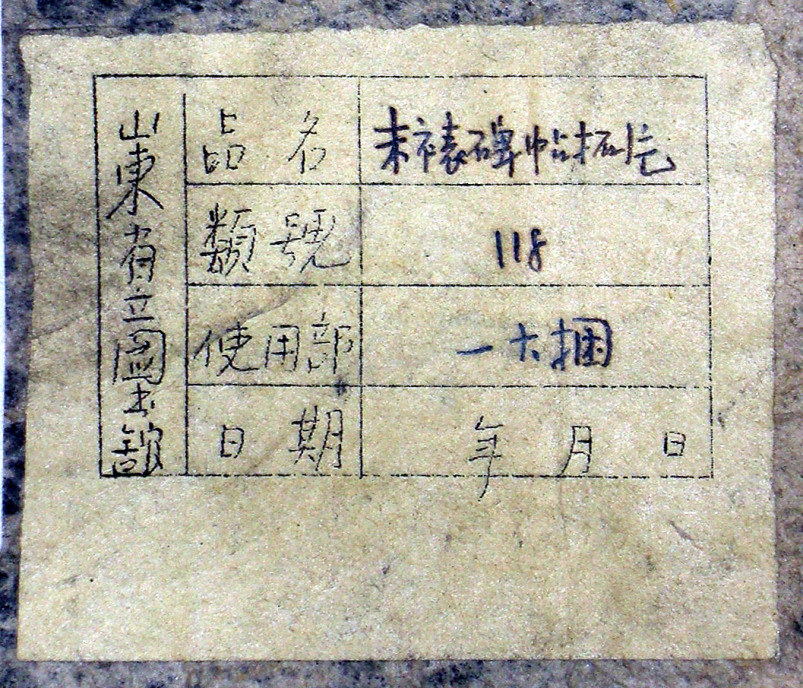 山東省立圖书館
品名 未裱碑帖拓片
類號 118
使用部 一大捆
日期 年 月 日